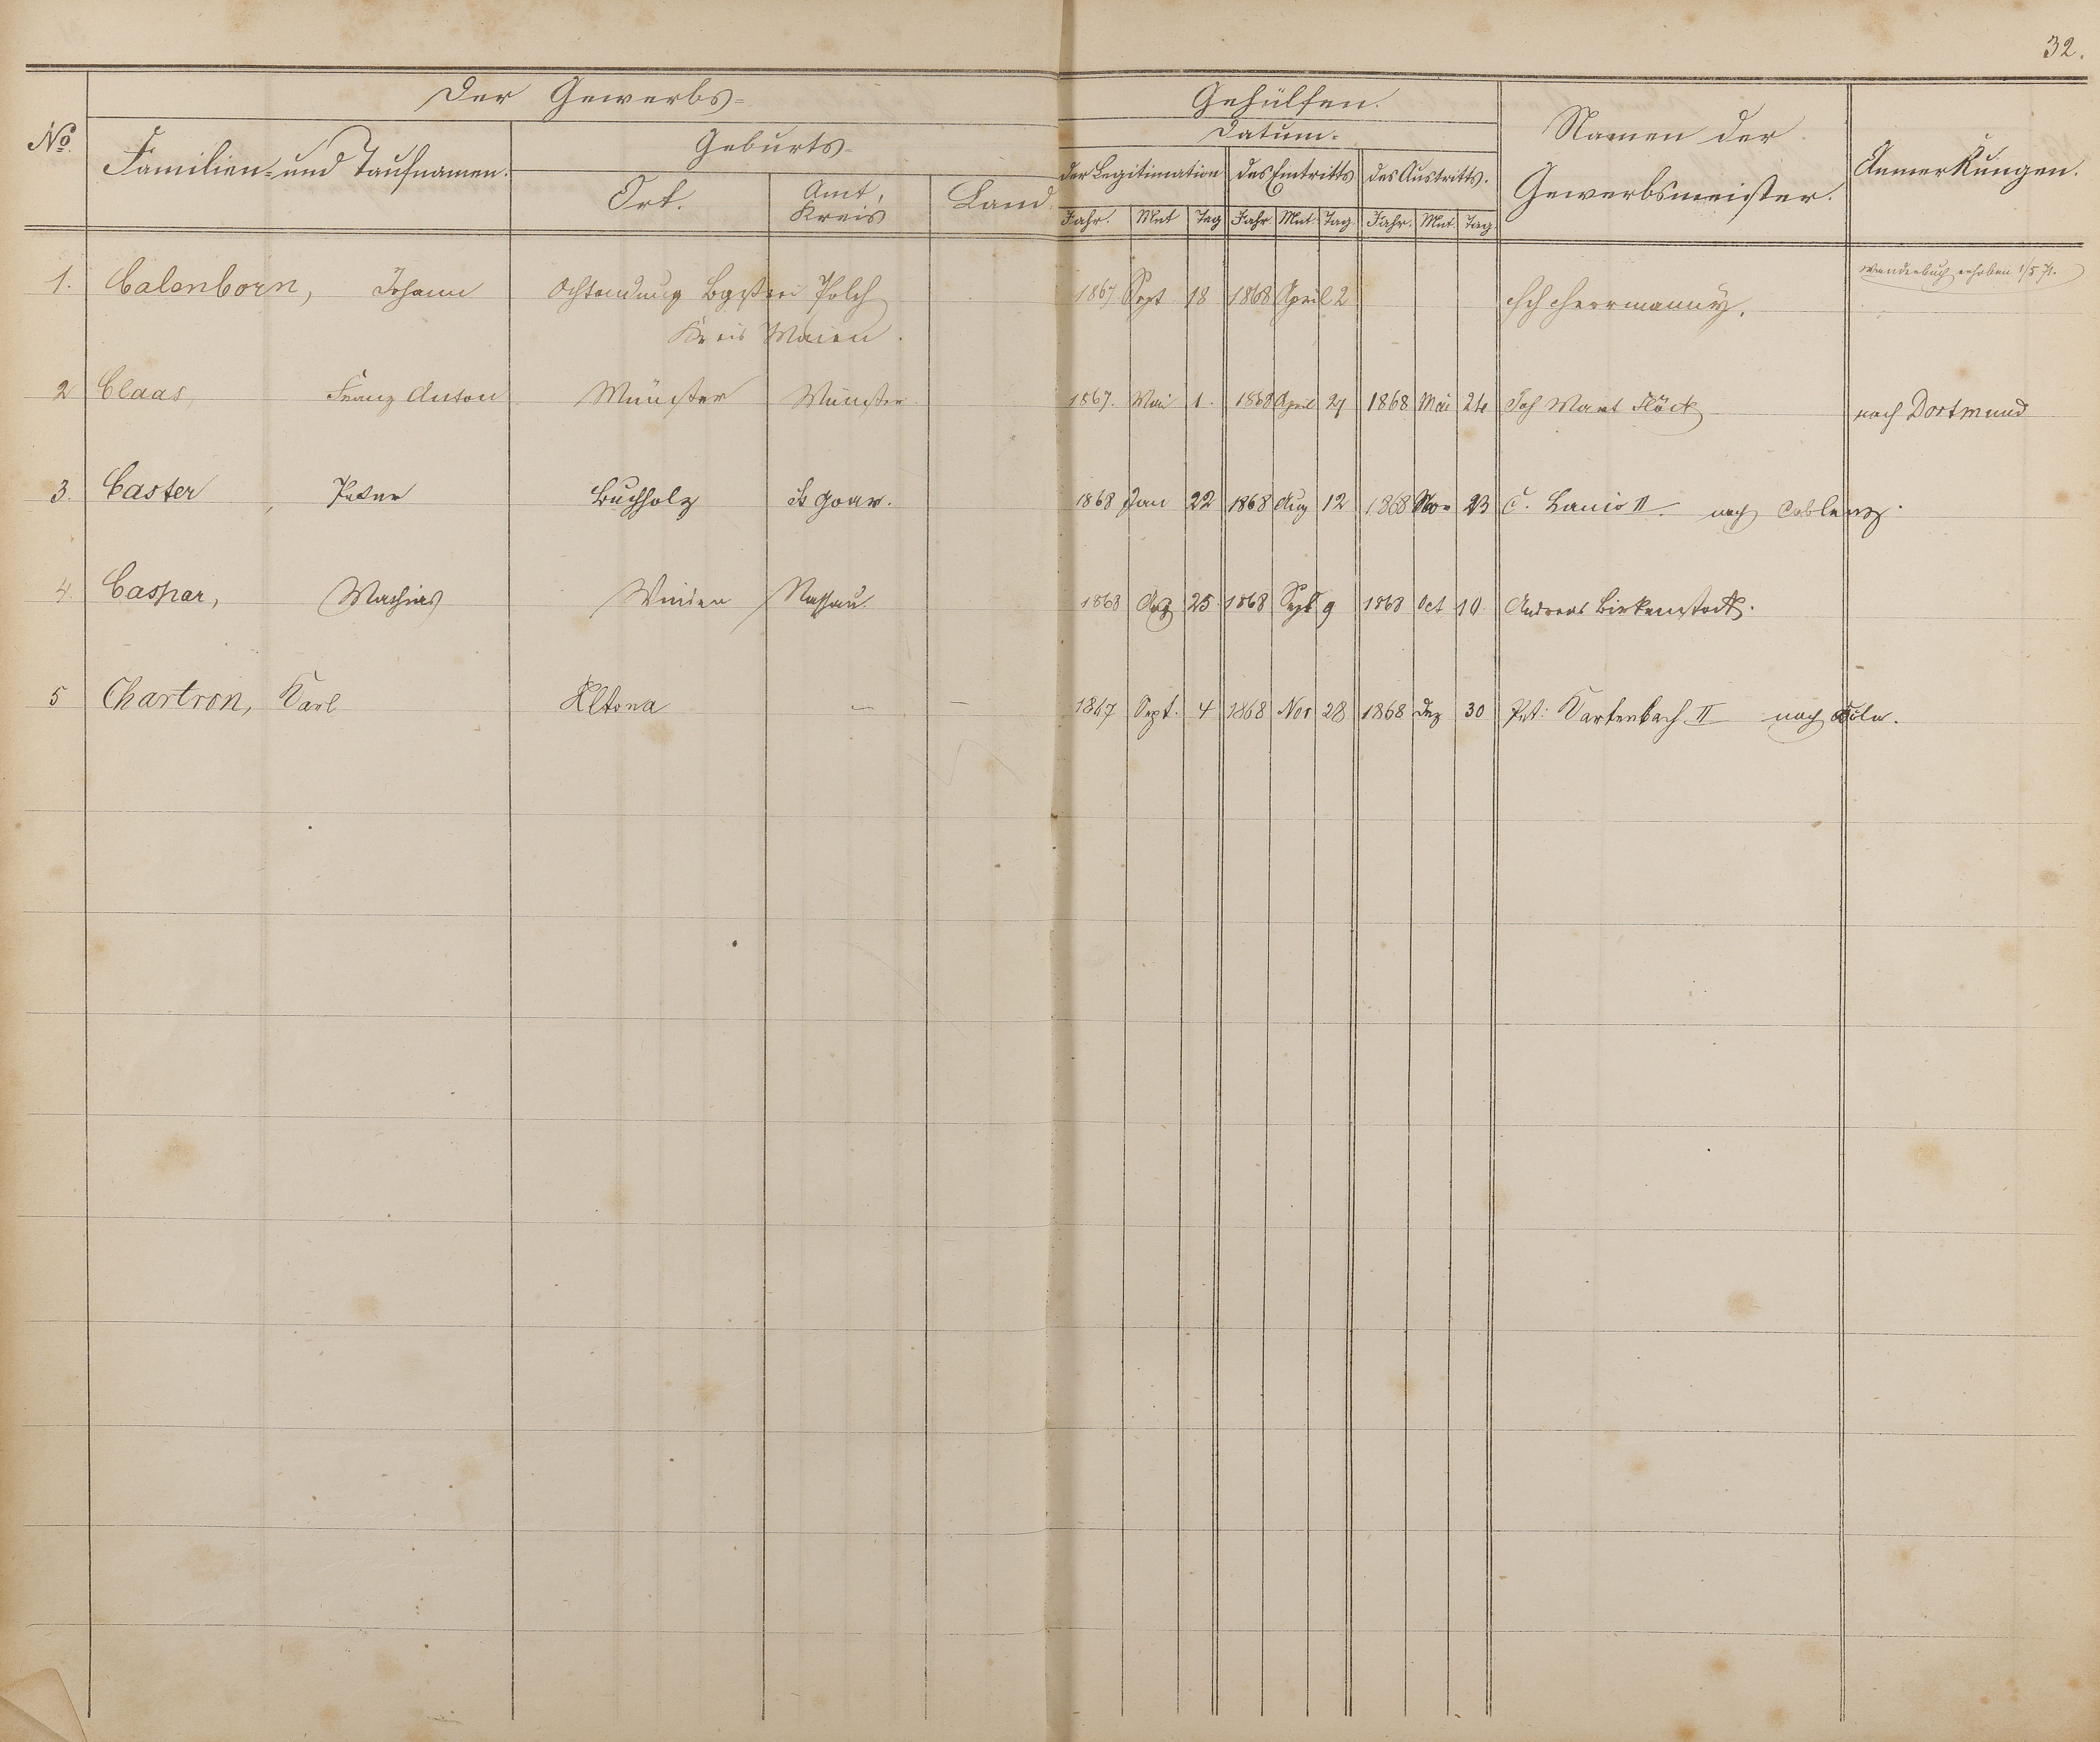 32.
Der Gewerbs- Gehülfen.
No. Familien- und Taufnamen. Geburts- Datum. Namen der Gewerbsmeister. Anmerkungen.
Ort. Amt, Kreis Land der Legitimation des Eintritts des Austritts.
Jahr. Mnt Tag Jahr Mnt. Tag. Jahr. Mnt. Tag.
Wanderbuch erhoben 1/5 71.
1. Calenborn, Johann Ochtendung Bgstrei Polch 1867 Sept 18 1868 April 2 Herrmann
Kreis Maien.
2 Claas, Franz Anton Münster Münster 1867. Mai 1. 1868 April 27 1868 Mai 24 Joh Mart Flöck nach Dortmund
3. Caster, Peter Buchholz St Goar. 1868 Jan 22 1868 Aug 12 1868 Nov 23 C. Lanio II nach Coblenz.
4. Caspar, Mathias Winden Nassau 1868 Aug 25 1868 Sept 9 1868 Oct 10 Andreas Birkenstock.
5 Chartron, Karl Altona — — 1867 Sept. 4 1868 Nov 28 1868 Dez 30 Pet: Kartenbach II nach Cöln.